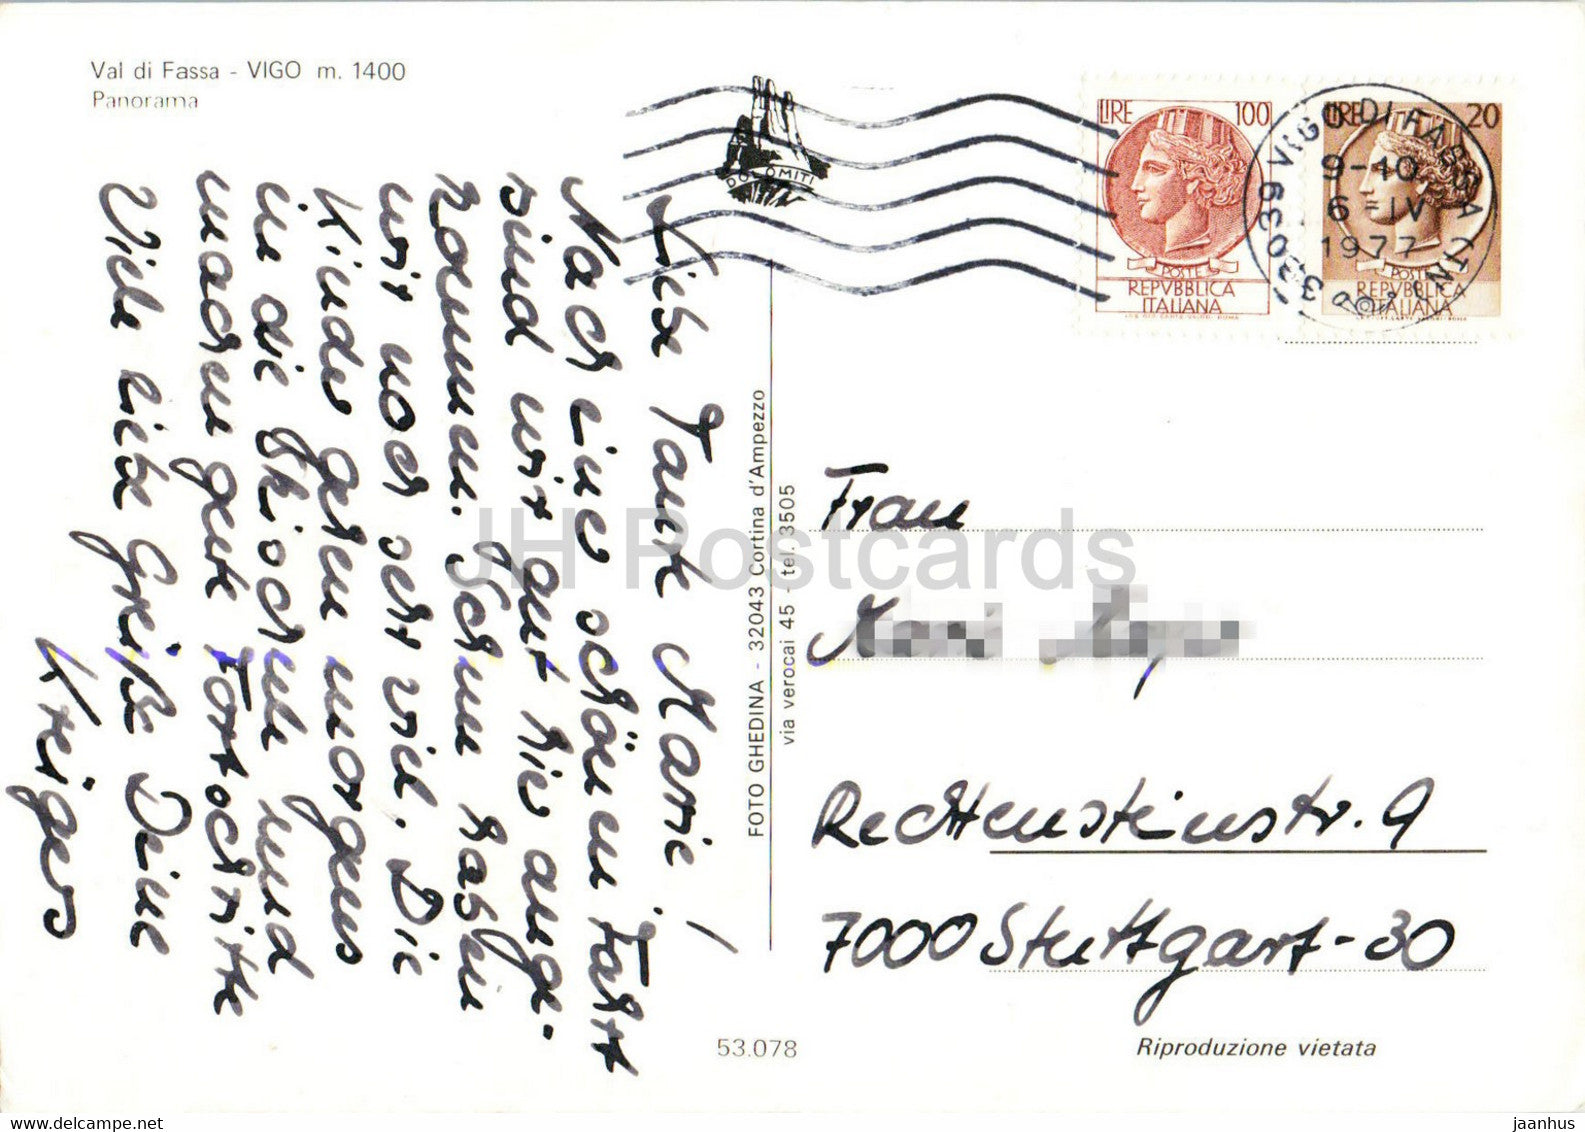 Val di Fassa - VIGO m. 1400
Panorama
Liebe Tante Marie!
Nach einer schönen Fahrt
sind wir gut hier ange-
kommen. Schnee haben
wir noch sehr viel. Die
Kinder gehen morgens
in die Skischule und
machen gute Fortschritte
Viele liebe Grüße Deine
Krügers
FOTO GHEDINA - 32043 Cortina d'Ampezzo
via verocai 45 - tel. 3505
53.078
DOLOMITI
LIRE 100
POSTE
REPVBBLICA
ITALIANA
LIRE 20
POSTE
REPVBBLICA
ITALIANA
38039 VIGO DI FASSA (TN)
9-10
6-IV
1977
Frau
Rechtensteinstr. 9
7000 Stuttgart-30
Riproduzione vietata
JH Postcards
jaanhus